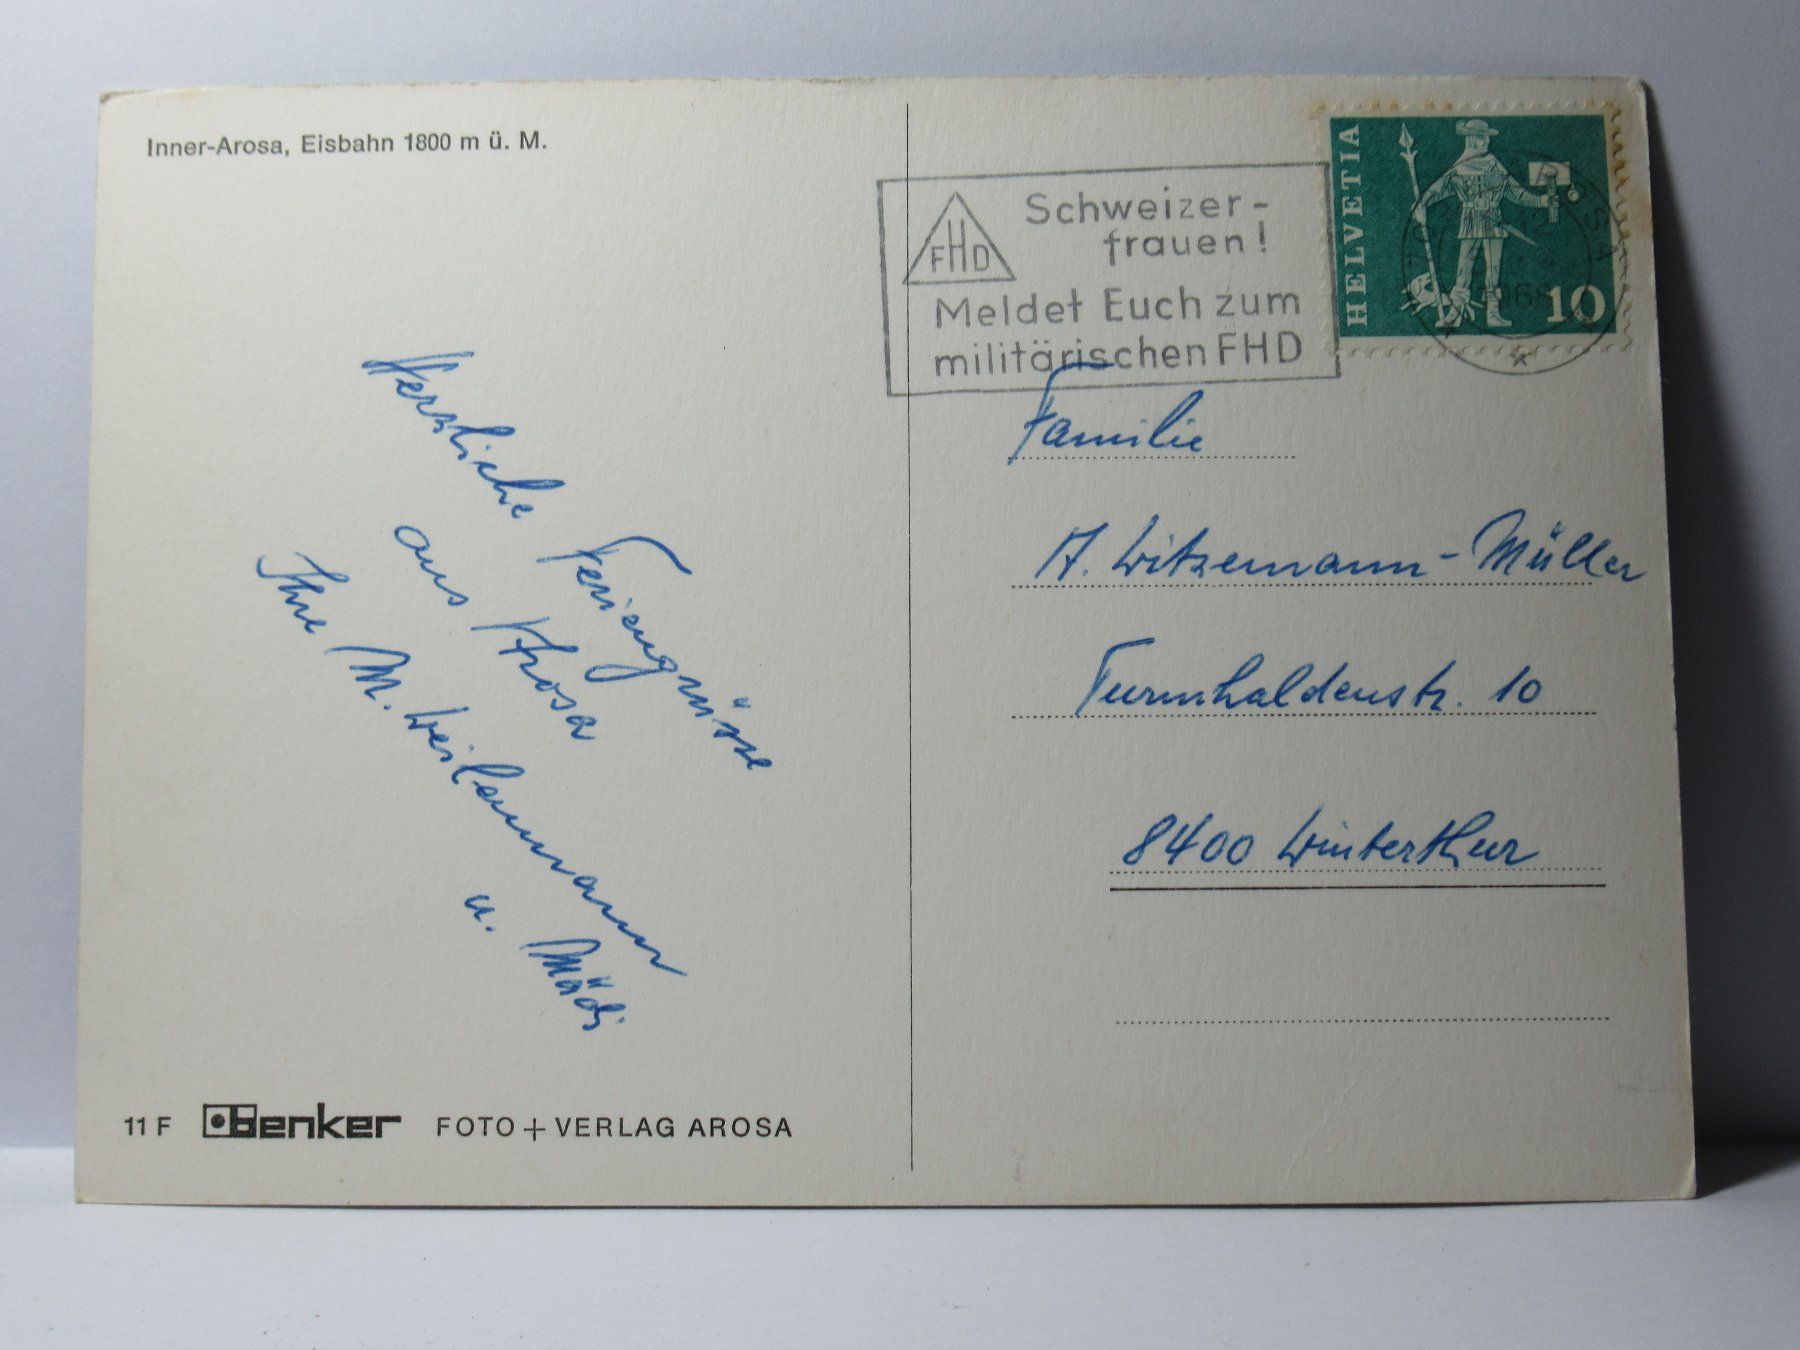 Inner-Arosa, Eisbahn 1800 m ü. M.
Herzliche Feriengrüsse
aus Arosa
Ihre M. Weilenmann
u. Mädi
11 F Benker FOTO + VERLAG AROSA
FHD
Schweizer-
frauen!
Meldet Euch zum
militärischen FHD
HELVETIA
10
AROSA
Familie
A. Witzemann-Müller
Turmhaldenstr. 10
8400 Winterthur